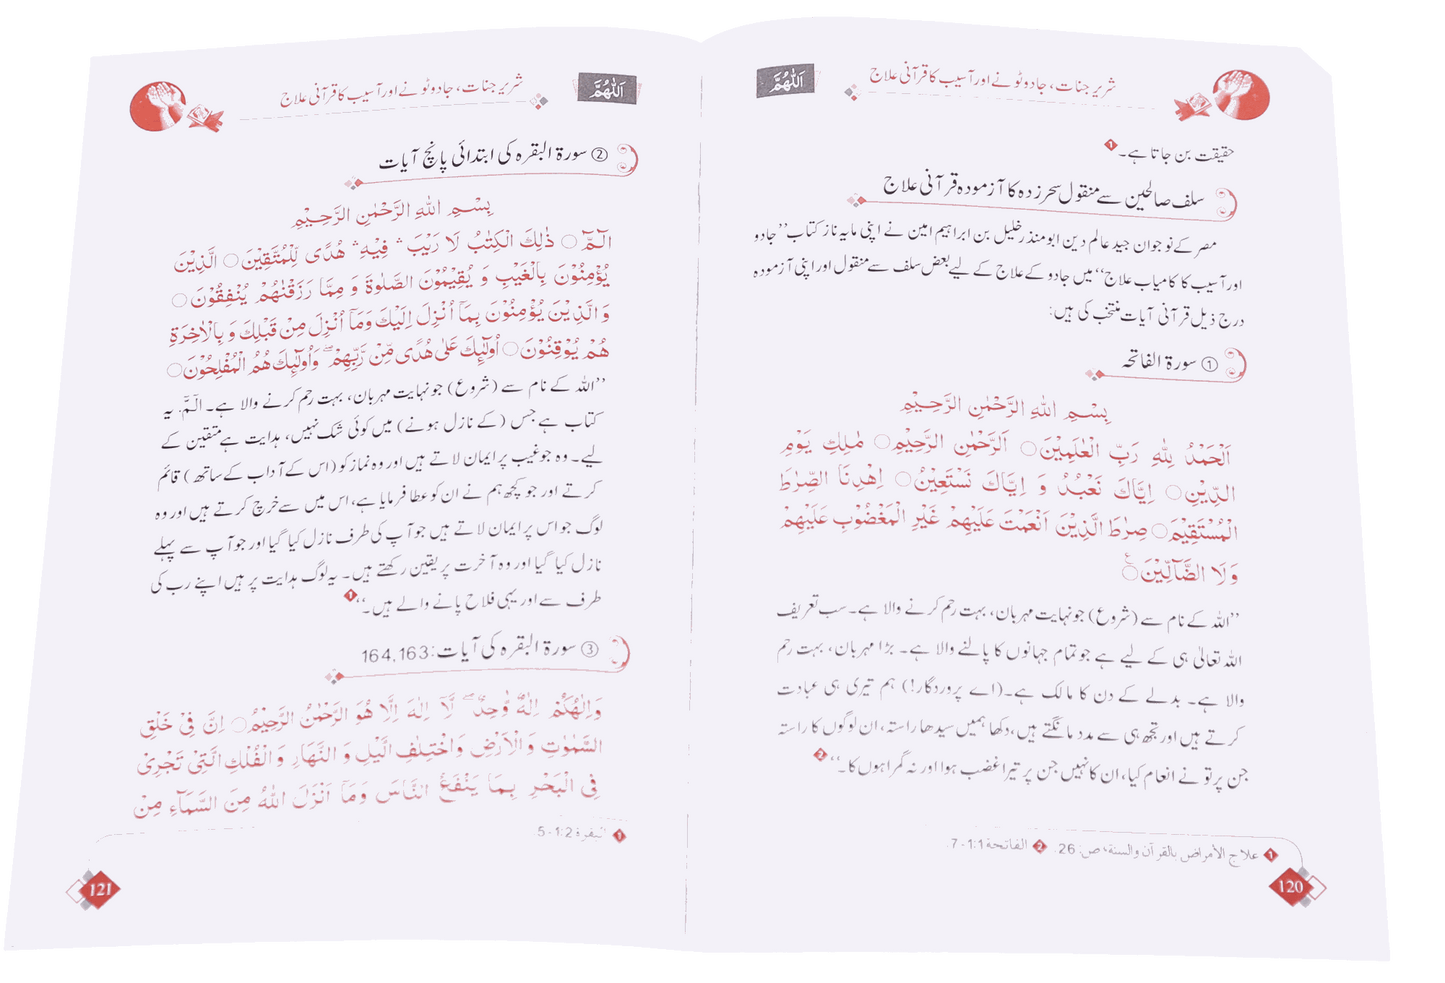 شریر جنات، جادو ٹونے اور آسیب کا قرآنی علاج
اَللّٰهُمَّ
حقیقت بن جاتا ہے۔ 1
سلف صالحین سے منقول سحر زدہ کا آزمودہ قرآنی علاج
مصر کے نوجوان جید عالم دین ابومنذر خلیل بن ابراہیم امین نے اپنی مایہ ناز کتاب ’’جادو
اور آسیب کا کامیاب علاج‘‘ میں جادو کے علاج کے لیے بعض سلف سے منقول اور اپنی آزمودہ
درج ذیل قرآنی آیات منتخب کی ہیں:
① سورۃ الفاتحہ
بِسْمِ اللهِ الرَّحْمٰنِ الرَّحِيْمِ
اَلْحَمْدُ لِلّٰهِ رَبِّ الْعٰلَمِيْنَ○ اَلرَّحْمٰنِ الرَّحِيْمِ○ مٰلِكِ يَوْمِ
الدِّيْنِ○ اِيَّاكَ نَعْبُدُ وَ اِيَّاكَ نَسْتَعِيْنُ○ اِهْدِنَا الصِّرٰطَ
الْمُسْتَقِيْمَ○ صِرٰطَ الَّذِيْنَ اَنْعَمْتَ عَلَيْهِمْ غَيْرِ الْمَغْضُوْبِ عَلَيْهِمْ
وَلَا الضَّآلِّيْنَ○
’’اللہ کے نام سے (شروع) جو نہایت مہربان، بہت رحم کرنے والا ہے۔ سب تعریف
اللہ تعالیٰ ہی کے لیے ہے جو تمام جہانوں کا پالنے والا ہے۔ بڑا مہربان، بہت رحم
والا ہے۔ بدلے کے دن کا مالک ہے۔ (اے پروردگار!) ہم تیری ہی عبادت
کرتے ہیں اور تجھ ہی سے مدد مانگتے ہیں، دکھا ہمیں سیدھا راستہ، ان لوگوں کا راستہ
جن پر تو نے انعام کیا، ان کا نہیں جن پر تیرا غضب ہوا اور نہ گمراہوں کا۔‘‘ 2
1 علاج الأمراض بالقرآن والسنة، ص: 26. 2 الفاتحة 1:1-7.
120
اَللّٰهُمَّ
شریر جنات، جادو ٹونے اور آسیب کا قرآنی علاج
② سورۃ البقرہ کی ابتدائی پانچ آیات
بِسْمِ اللهِ الرَّحْمٰنِ الرَّحِيْمِ
الٓمّٓ○ ذٰلِكَ الْكِتٰبُ لَا رَيْبَ ۛ فِيْهِ ۛ هُدًى لِّلْمُتَّقِيْنَ○ الَّذِيْنَ
يُؤْمِنُوْنَ بِالْغَيْبِ وَ يُقِيْمُوْنَ الصَّلٰوةَ وَ مِمَّا رَزَقْنٰهُمْ يُنْفِقُوْنَ○
وَ الَّذِيْنَ يُؤْمِنُوْنَ بِمَآ اُنْزِلَ اِلَيْكَ وَمَآ اُنْزِلَ مِنْ قَبْلِكَ وَ بِالْاٰخِرَةِ
هُمْ يُوْقِنُوْنَ○ اُولٰٓئِكَ عَلٰى هُدًى مِّنْ رَّبِّهِمْ ۗ وَاُولٰٓئِكَ هُمُ الْمُفْلِحُوْنَ○
’’اللہ کے نام سے (شروع) جو نہایت مہربان، بہت رحم کرنے والا ہے۔ الٓمّٓ، یہ
کتاب ہے جس (کے نازل ہونے) میں کوئی شک نہیں، ہدایت ہے متقین کے
لیے۔ وہ جو غیب پر ایمان لاتے ہیں اور وہ نماز کو (اس کے آداب کے ساتھ) قائم
کرتے اور جو کچھ ہم نے ان کو عطا فرمایا ہے، اس میں سے خرچ کرتے ہیں اور وہ
لوگ جو اس پر ایمان لاتے ہیں جو آپ کی طرف نازل کیا گیا اور جو آپ سے پہلے
نازل کیا گیا اور وہ آخرت پر یقین رکھتے ہیں۔ یہ لوگ ہدایت پر ہیں اپنے رب کی
طرف سے اور یہی فلاح پانے والے ہیں۔‘‘ 1
③ سورۃ البقرہ کی آیات: 164,163
وَاِلٰهُكُمْ اِلٰهٌ وَّاحِدٌ ۚ لَآ اِلٰهَ اِلَّا هُوَ الرَّحْمٰنُ الرَّحِيْمُ○ اِنَّ فِيْ خَلْقِ
السَّمٰوٰتِ وَ الْاَرْضِ وَ اخْتِلَافِ الَّيْلِ وَ النَّهَارِ وَ الْفُلْكِ الَّتِيْ تَجْرِيْ
فِي الْبَحْرِ بِمَا يَنْفَعُ النَّاسَ وَمَآ اَنْزَلَ اللهُ مِنَ السَّمَآءِ مِنْ
1 البقرة 1:2-5
121